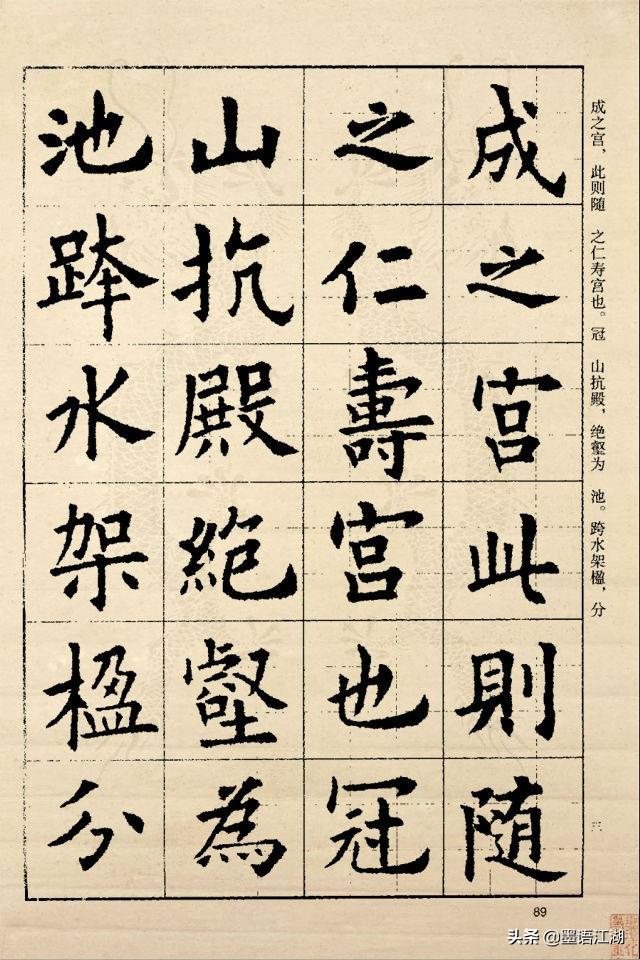 成之宮此則随
之仁壽宮也冠
山抗殿絶壑為
池跨水架楹分
成之宫，此则随 之仁寿宫也。冠 山抗殿，绝壑为 池。跨水架楹，分
89
头条 @墨语江湖